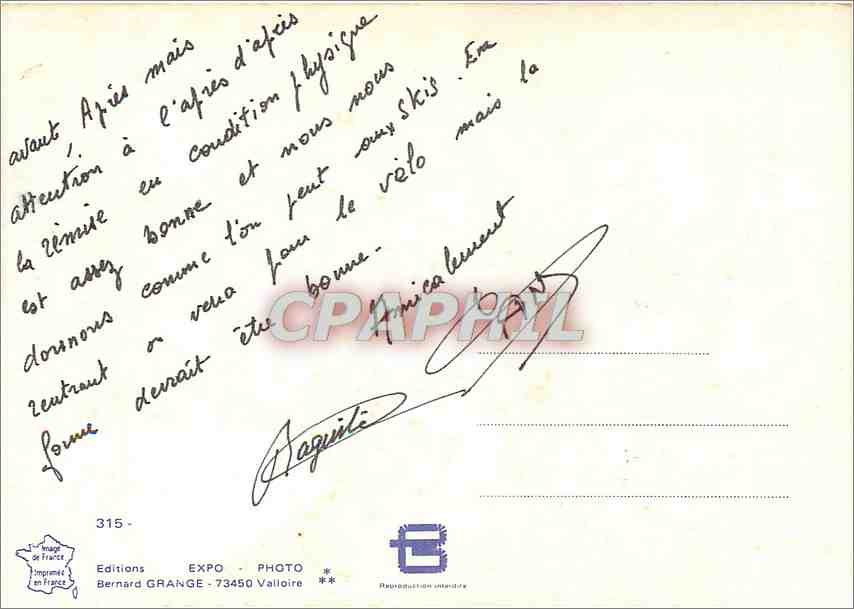 avant, Après mais
attention à l'après d'après
la remise en condition physique
est assez bonne et nous nous
donnons comme l'on peut aux skis. En
rentrant on verra pour le vélo mais la
forme devrait être bonne.
Amicalement
CPAPHIL
315 -
Image
de France
Imprimée
en France
Editions EXPO - PHOTO *
Bernard GRANGE - 73450 Valloire **
Reproduction interdite